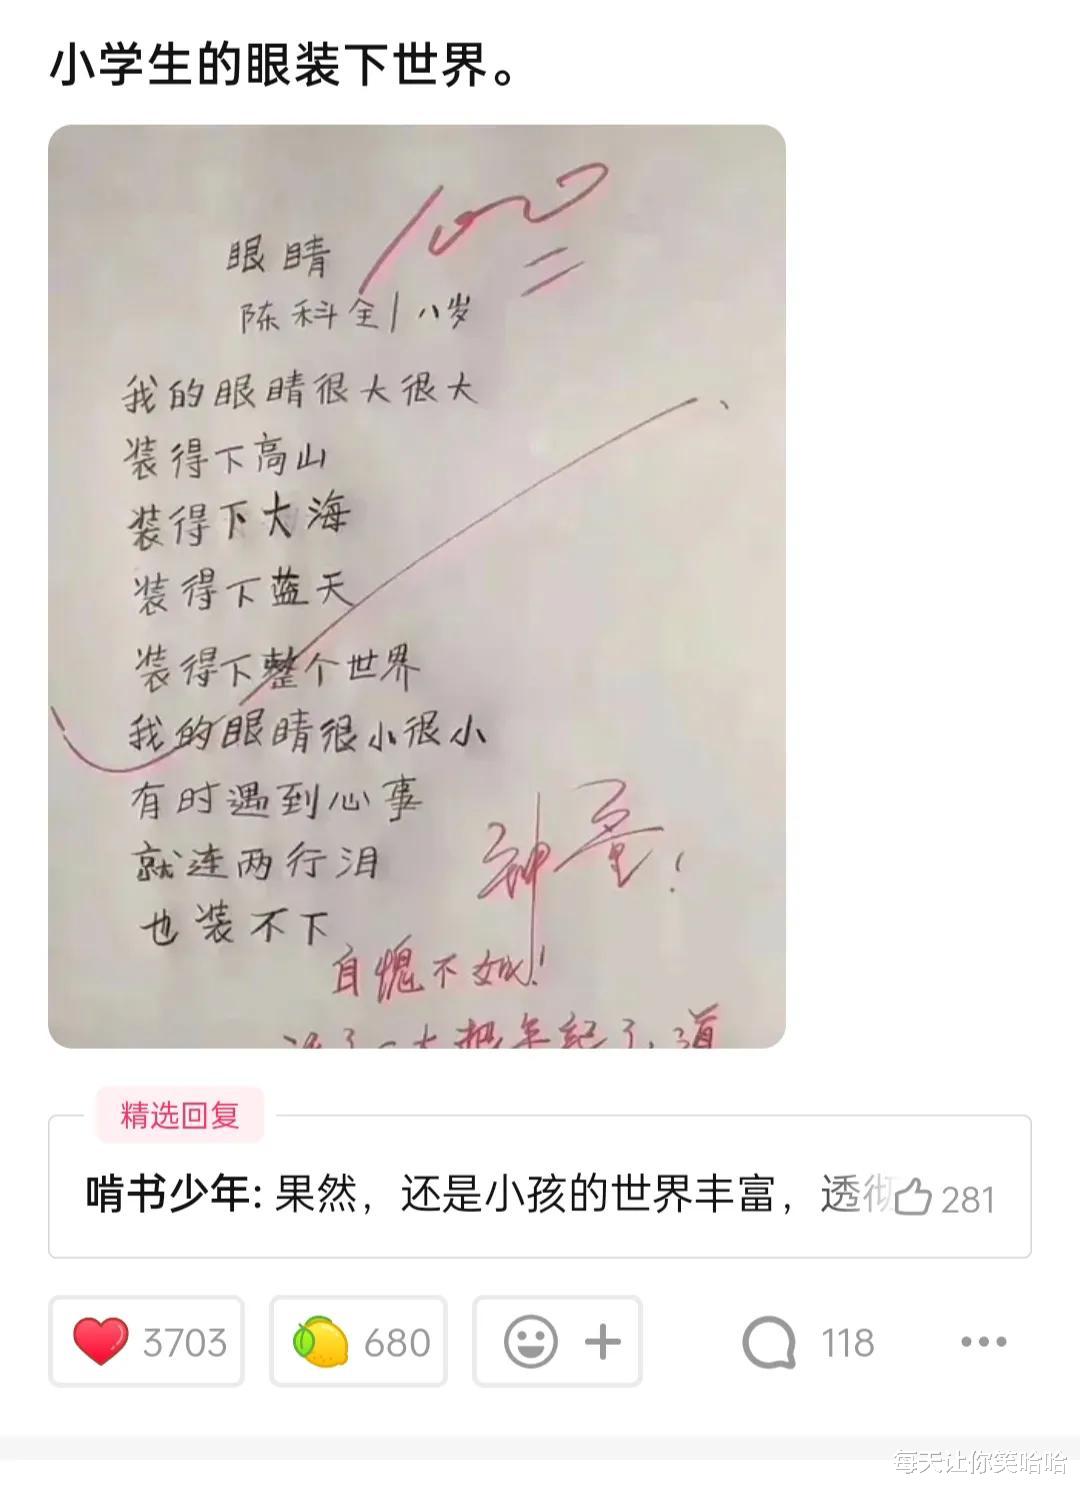 小学生的眼装下世界。
100
眼睛
陈科全/八岁
我的眼睛很大很大
装得下高山
装得下大海
装得下蓝天
装得下整个世界
我的眼睛很小很小
有时遇到心事
就连两行泪
也装不下
神童!
自愧不如!
活了一大把年纪了,道
精选回复
啃书少年: 果然，还是小孩的世界丰富，透彻
281
3703
680
118
每天让你笑哈哈